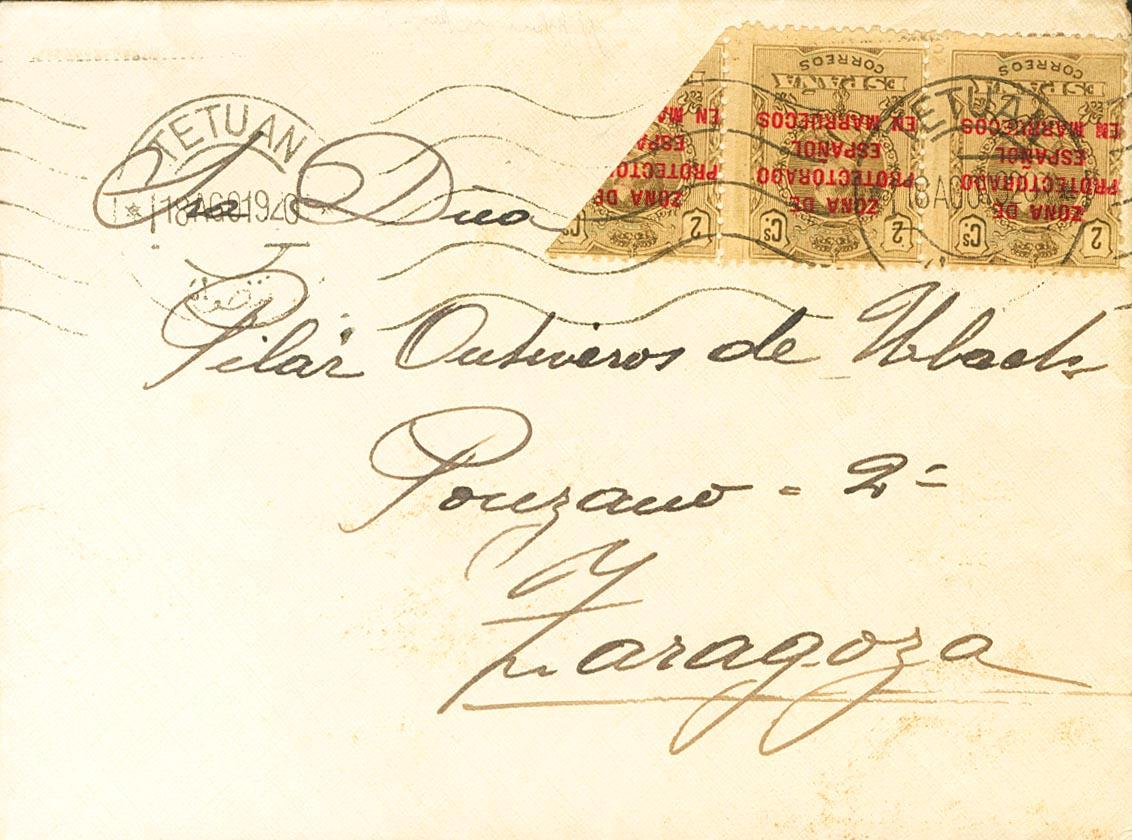 TETUAN
18 AGO 1920
TETUAN
18 AGO 19
CORREOS
ESPAÑA
ZONA DE
PROTECTORADO
ESPAÑOL
EN MARRUECOS
2 Cs
CORREOS
ESPAÑA
ZONA DE
PROTECTORADO
ESPAÑOL
EN MARRUECOS
2 Cs
ZONA DE
PROTECTO
ESPA
EN MA
2 Cs
Sra Dña
Pilar Ontiveros de
Ponzano = 2º
Zaragoza